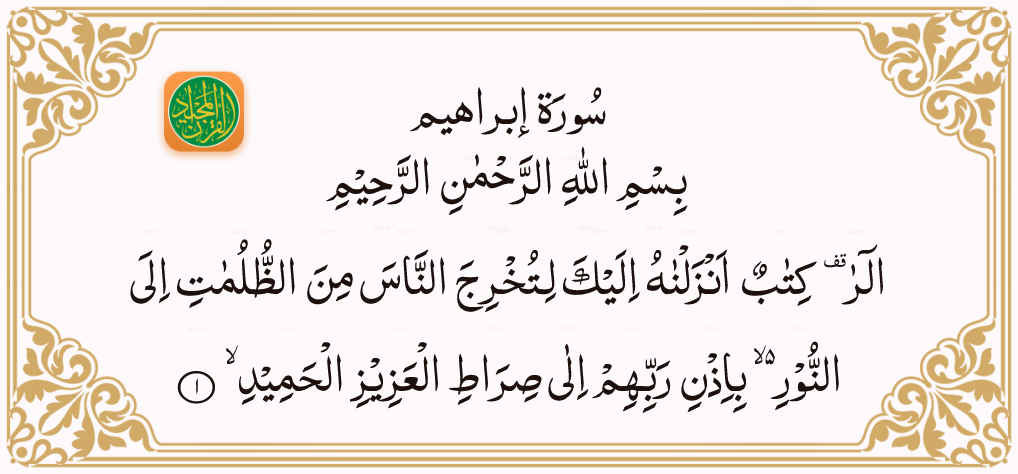 القرآن المجيد
سُورَة إبراهيم
بِسْمِ اللهِ الرَّحْمٰنِ الرَّحِيْمِ
الٓرٰ ۫ كِتٰبٌ اَنْزَلْنٰهُ اِلَيْكَ لِتُخْرِجَ النَّاسَ مِنَ الظُّلُمٰتِ اِلَى
النُّوْرِ ۵ۙ بِاِذْنِ رَبِّهِمْ اِلٰى صِرَاطِ الْعَزِيْزِ الْحَمِيْدِ ۙ ﴿۱﴾